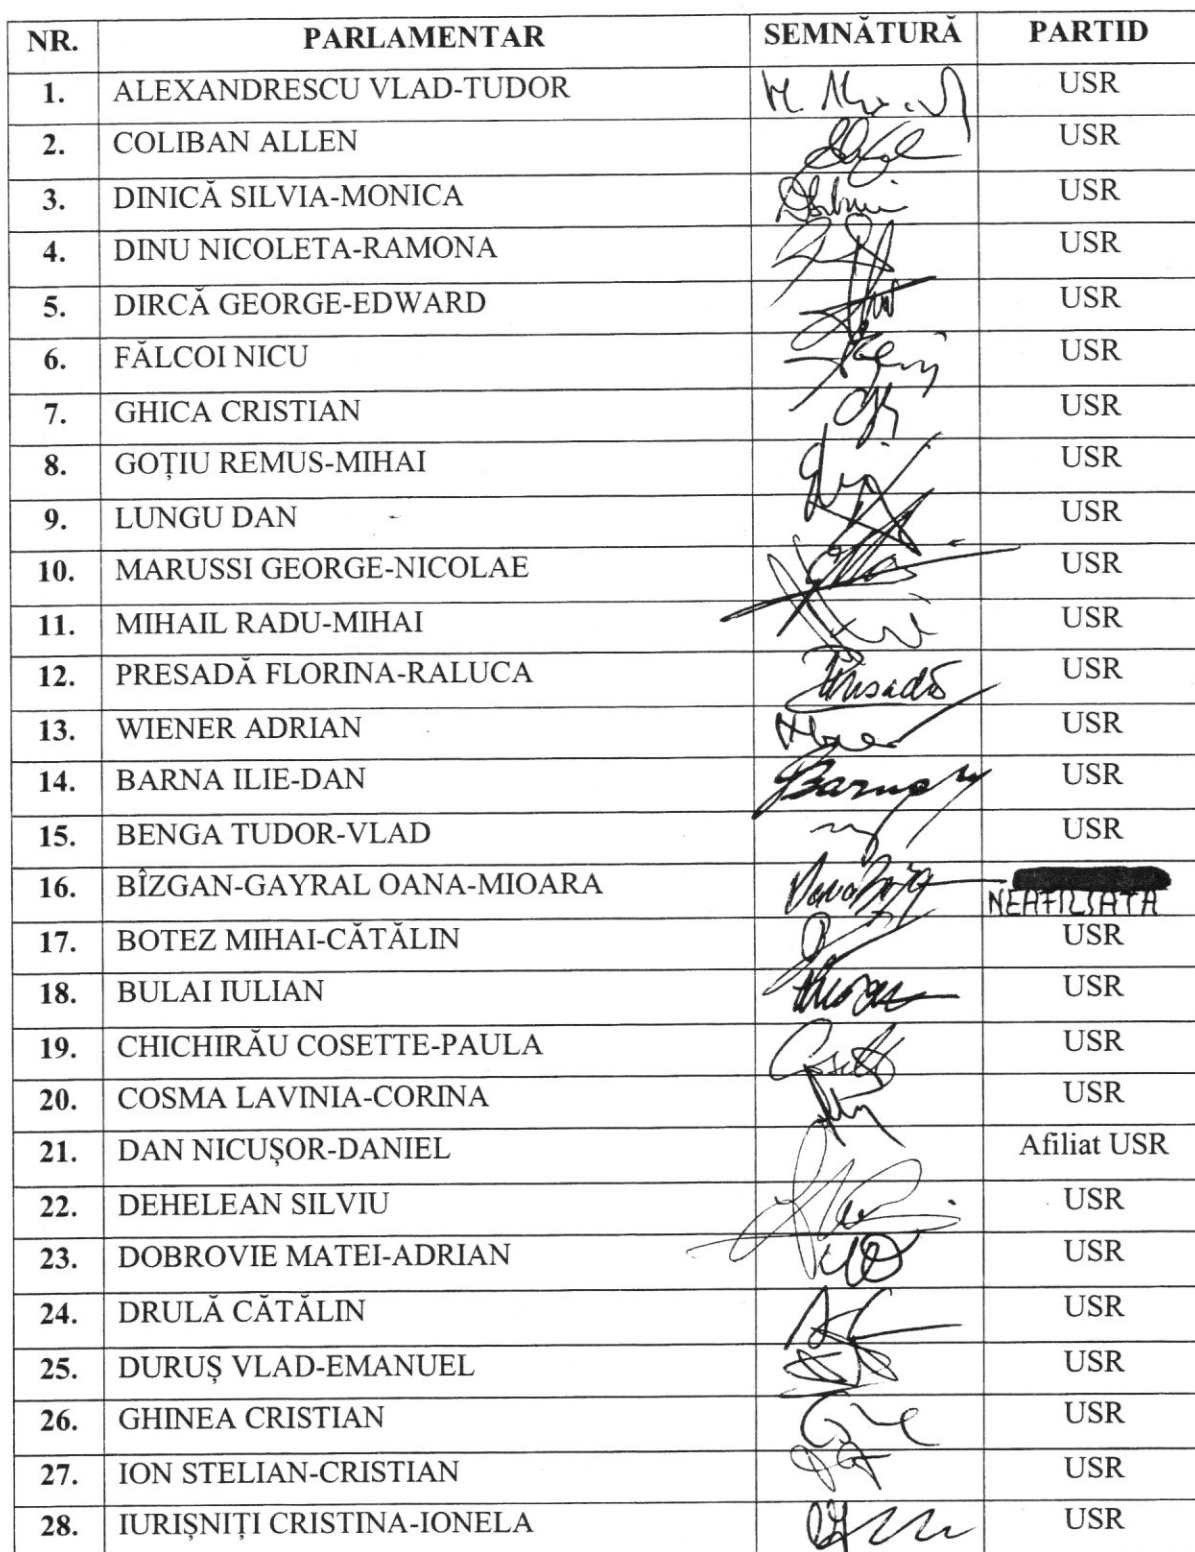 NR. PARLAMENTAR SEMNĂTURĂ PARTID
1. ALEXANDRESCU VLAD-TUDOR USR
2. COLIBAN ALLEN USR
3. DINICĂ SILVIA-MONICA USR
4. DINU NICOLETA-RAMONA USR
5. DIRCĂ GEORGE-EDWARD USR
6. FĂLCOI NICU USR
7. GHICA CRISTIAN USR
8. GOȚIU REMUS-MIHAI USR
9. LUNGU DAN USR
10. MARUSSI GEORGE-NICOLAE USR
11. MIHAIL RADU-MIHAI USR
12. PRESADĂ FLORINA-RALUCA Presadă USR
13. WIENER ADRIAN USR
14. BARNA ILIE-DAN Barna USR
15. BENGA TUDOR-VLAD USR
16. BÎZGAN-GAYRAL OANA-MIOARA NEAFILIATĂ
17. BOTEZ MIHAI-CĂTĂLIN USR
18. BULAI IULIAN USR
19. CHICHIRĂU COSETTE-PAULA USR
20. COSMA LAVINIA-CORINA USR
21. DAN NICUȘOR-DANIEL Afiliat USR
22. DEHELEAN SILVIU USR
23. DOBROVIE MATEI-ADRIAN USR
24. DRULĂ CĂTĂLIN USR
25. DURUȘ VLAD-EMANUEL USR
26. GHINEA CRISTIAN USR
27. ION STELIAN-CRISTIAN USR
28. IURIȘNIȚI CRISTINA-IONELA USR